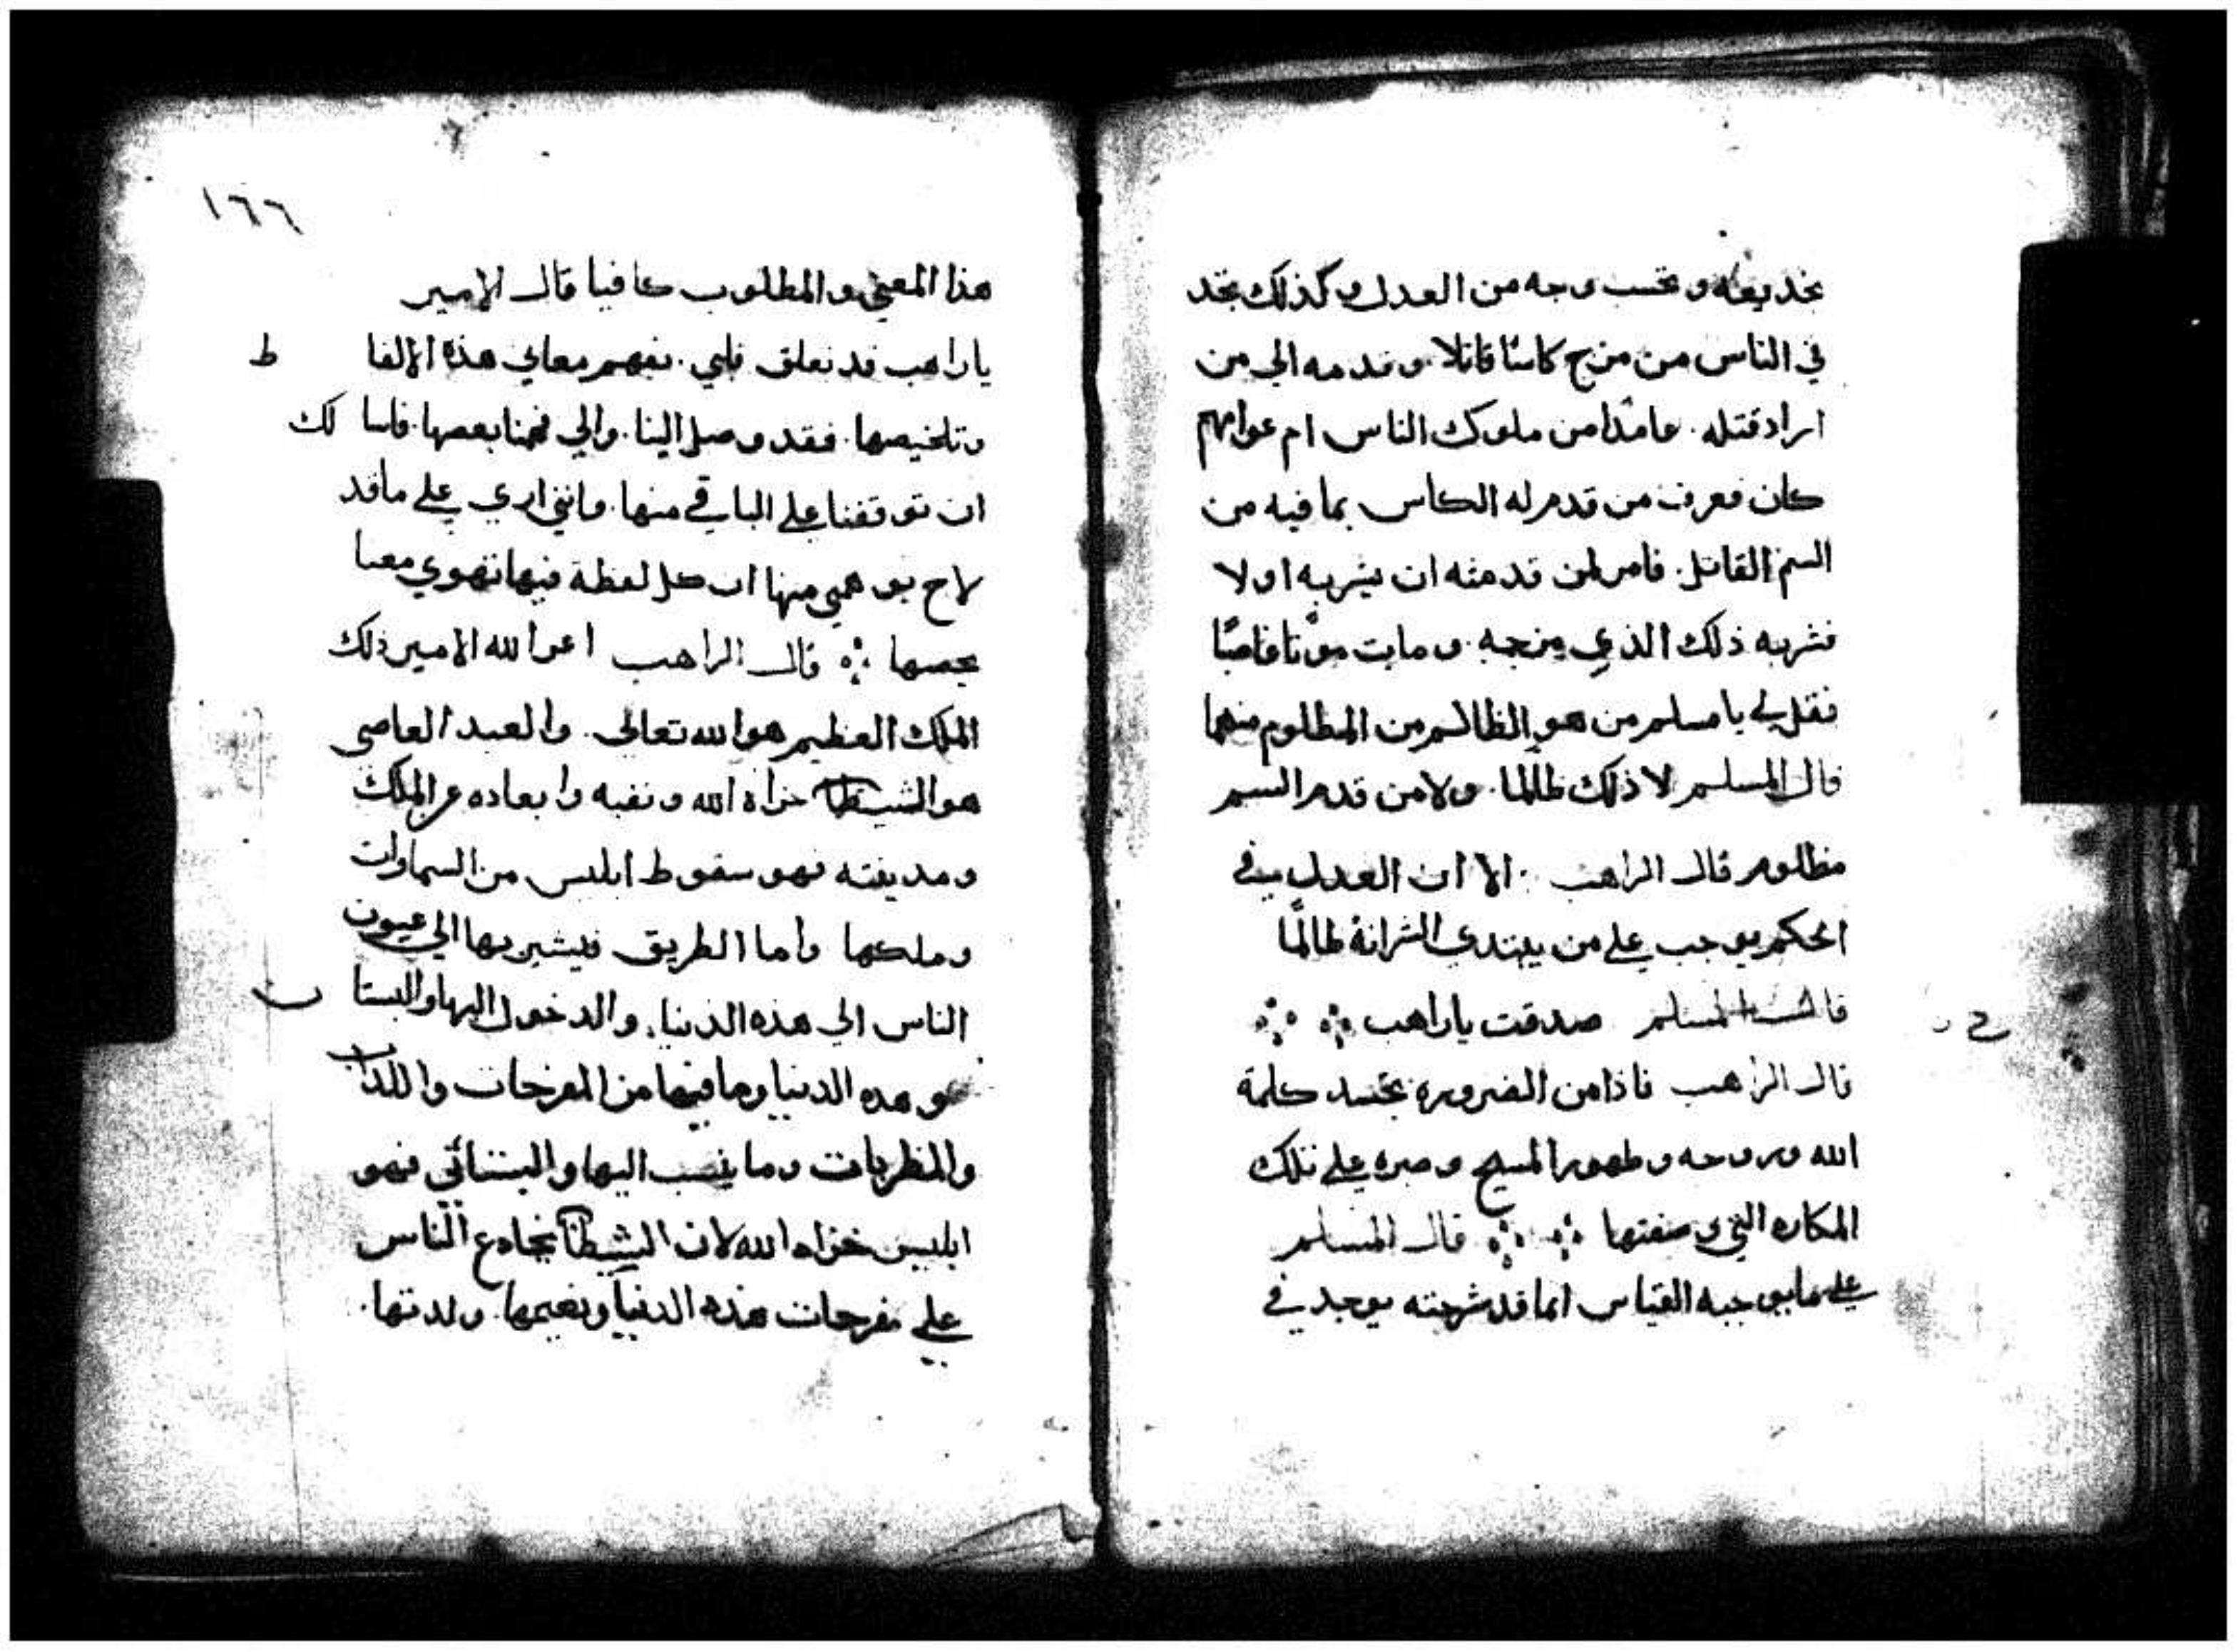 بخديعته وتحسب وجه من العدل وكذلك تجد
في الناس من مزج كاسًا قاتلا. وقدمه الي من
اراد قتله. عامدا من ملوك الناس ام عوامهم
كان فعرف من قدم له الكاس بما فيه من
السم القاتل. فامر لمن قدمته ان يشربه اولا
فشربه ذلك الذي مزجه. ومات موتا
فقل لي يا مسلم من هو الظالم من المظلوم منهما
قال المسلم لا ذلك ظالما. ولا من قدم السم
مظلوم قال الراهب ∴ الا ان العدل في
الحكم يوجب علي من يبتدي الشر انهُ ظالمًا
قال المسلم صدقت ياراهب
قال الراهب فاذا من الضروره تجسد كلمة
الله وروحه وظهور المسيح وصبره علي تلك
المكاره التي وصفتها قال المسلم
علي مايوجبه القياس انما قد شرحته يوجد في
١٦٦
هذا المعني والمطلوب كافيا قال الامير
ياراهب قد تعلق قلبي. بفهم معاني هذه الالفا ظ
وتلخيصها. فقد وصل الينا. والي فهمنا بعضها. فاسا لك
ان توقفنا علي الباقي منها. فانني اري علي ماقد
لاح بوهمي منها ان كل لفظة فيها تهوي معنا
يخصها قال الراهب اعز الله الامير ذلك
الملك العظيم هو الله تعالي. والعبد العاصي
هو الشيطان خزاه الله ونفيه وابعاده عن الملك
ومدينته فهو سقوط ابليس من السماوات
وملكها واما الطريق فيشير بها الي عيون
الناس الي هذه الدنيا. والدخول اليها والبستا ن
هو هذه الدنيا وما فيها من المفرحات واللذات
والمنظربات وما ينسب اليها والبستاني فهو
ابليس خزاه الله لان الشيطان يخادع الناس
علي مفرحات هذه الدنيا ونعيمها. ولدتها.